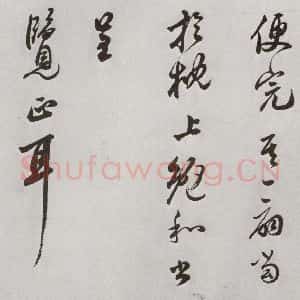 便完其一扇當
於枕上勉和書
呈
覽正耳
Shufawang.CN